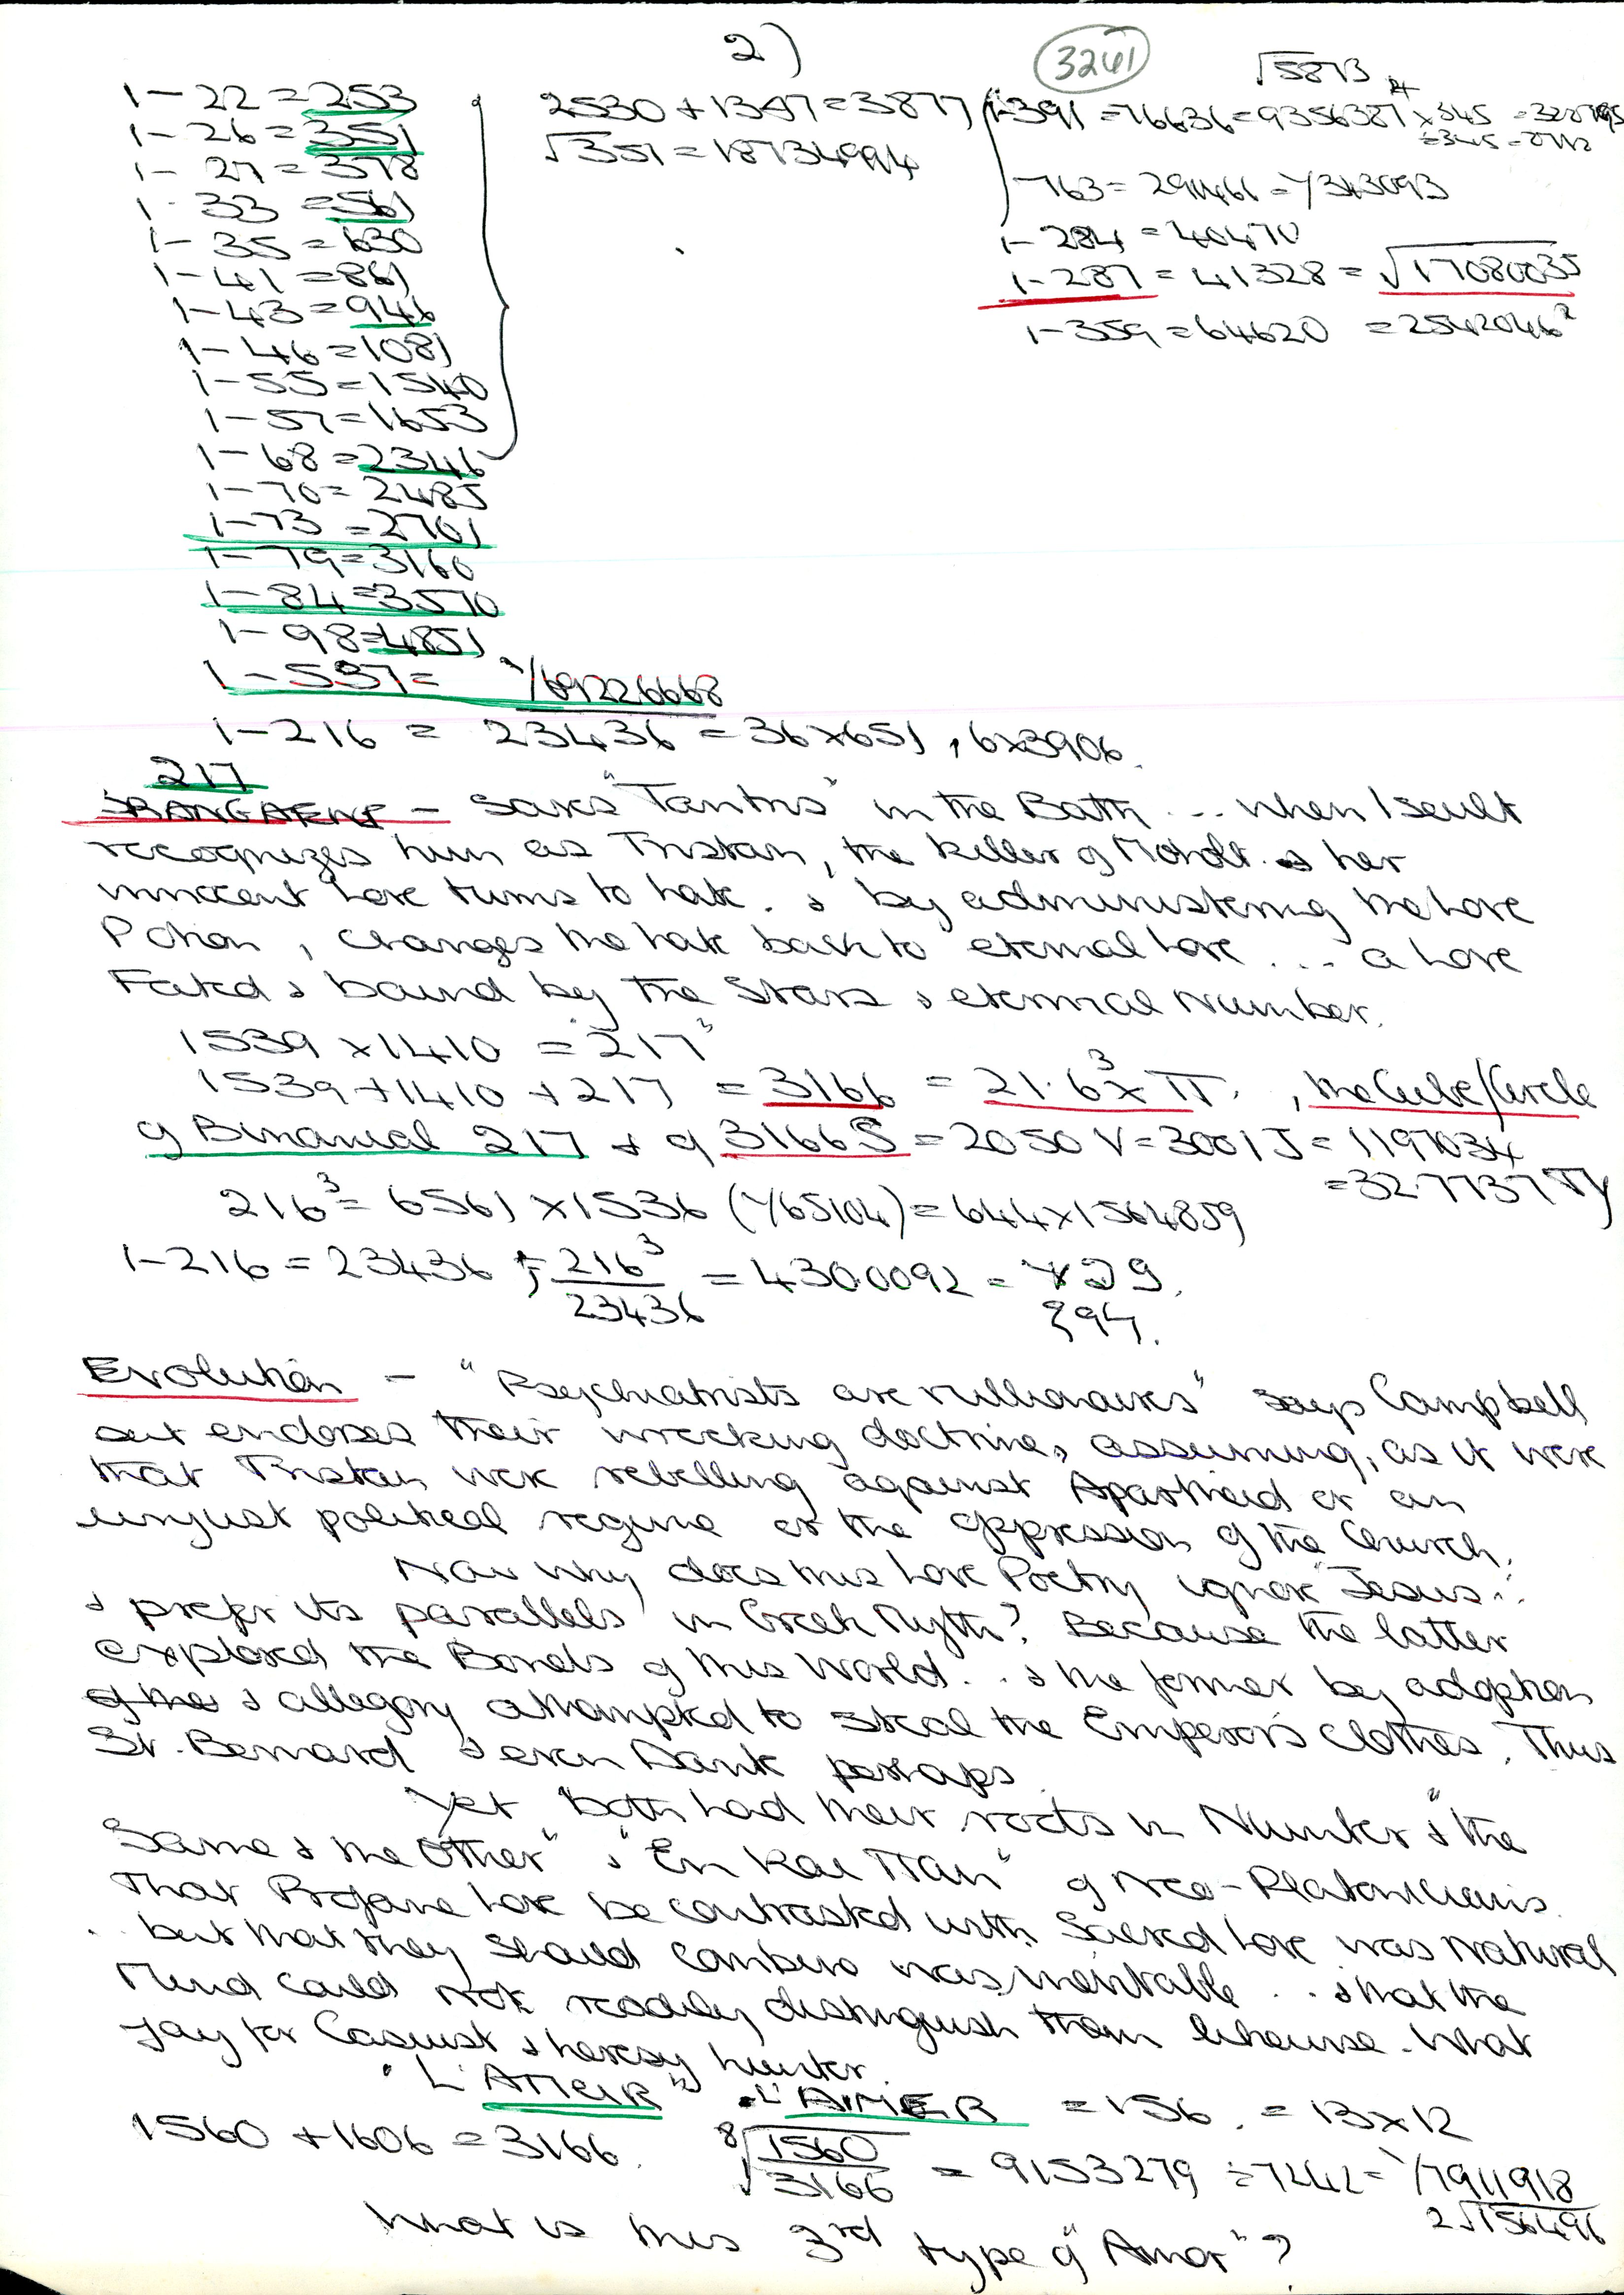 2)
3241
1-22 = 253
1-26 = 351
1-27 = 378
1-33 = 561
1-35 = 630
1-41 = 861
1-43 = 946
1-46 = 1081
1-55 = 1540
1-57 = 1653
1-68 = 2346
1-70 = 2485
1-73 = 2701
1-79 = 3160
1-84 = 3570
1-98 = 4851
1-537 = 1/69226668
1-216 = 23436 = 36x651, 6x3906.
2530 + 1347 = 3877
√351 = 18734994
√5873
1-391 = 76636 = 9356387 x 345
÷345
763 = 291466 = 1/343093
1-284 = 40470
1-287 = 41328 = √17080035
1-359 = 64620 = 2542046²
217
BRANGAENE - Saves "Tantris" in the Bath ... when Iseult
recognizes him as Tristan, the killer of Morolt. & her
innocent Love turns to hate. & by administering the Love
Potion, changes the hate back to eternal Love ... a Love
Fated & bound by the Stars & eternal Number.
1539 x 1410 = 217
1539 + 1410 + 217 = 3166 = 21.6³ x π. , the Cube/Circle
of Binomial 217 & of 3166 S = 2050 V = 3001 J = 1197034
= 327737
216³ = 6561 x 1536 (1/65104) = 644 x 1564859
1-216 = 23436 ; 216³/23436 = 430.0092 =
294.
Evolution - "Psychiatrists are millionaires" says Campbell
but endorses their wrecking doctrines, assuming, as it were
that Tristan were rebelling against Apartheid or an
unjust political regime or the oppression of the Church.
Now why does this Love Poetry ignore "Jesus"
& prefer its parallels in Greek Myth? Because the latter
explored the Bonds of this World... & the former by adoption
of the & allegory attempted to steal the Emperor's Clothes. Thus
St. Bernard & even Dante perhaps.
Yet both had their roots in Number & "the
Same & the Other" & "En Kai Pan" of Neo-Platonicians.
That Profane Love be contrasted with Sacred Love was Natural
.. but that they should combine was inevitable .. & that the
Mind could not readily distinguish them likewise. What
Joy for Casuist & heresy hunter.
"L'AMEIR" "L'AMER = 156. = 13x12
1560 + 1606 = 3166. 8√1560/3166 = 9153279 ÷ 7242 = 1/7911918
2√156496
What is this 3rd type of "Amor"?